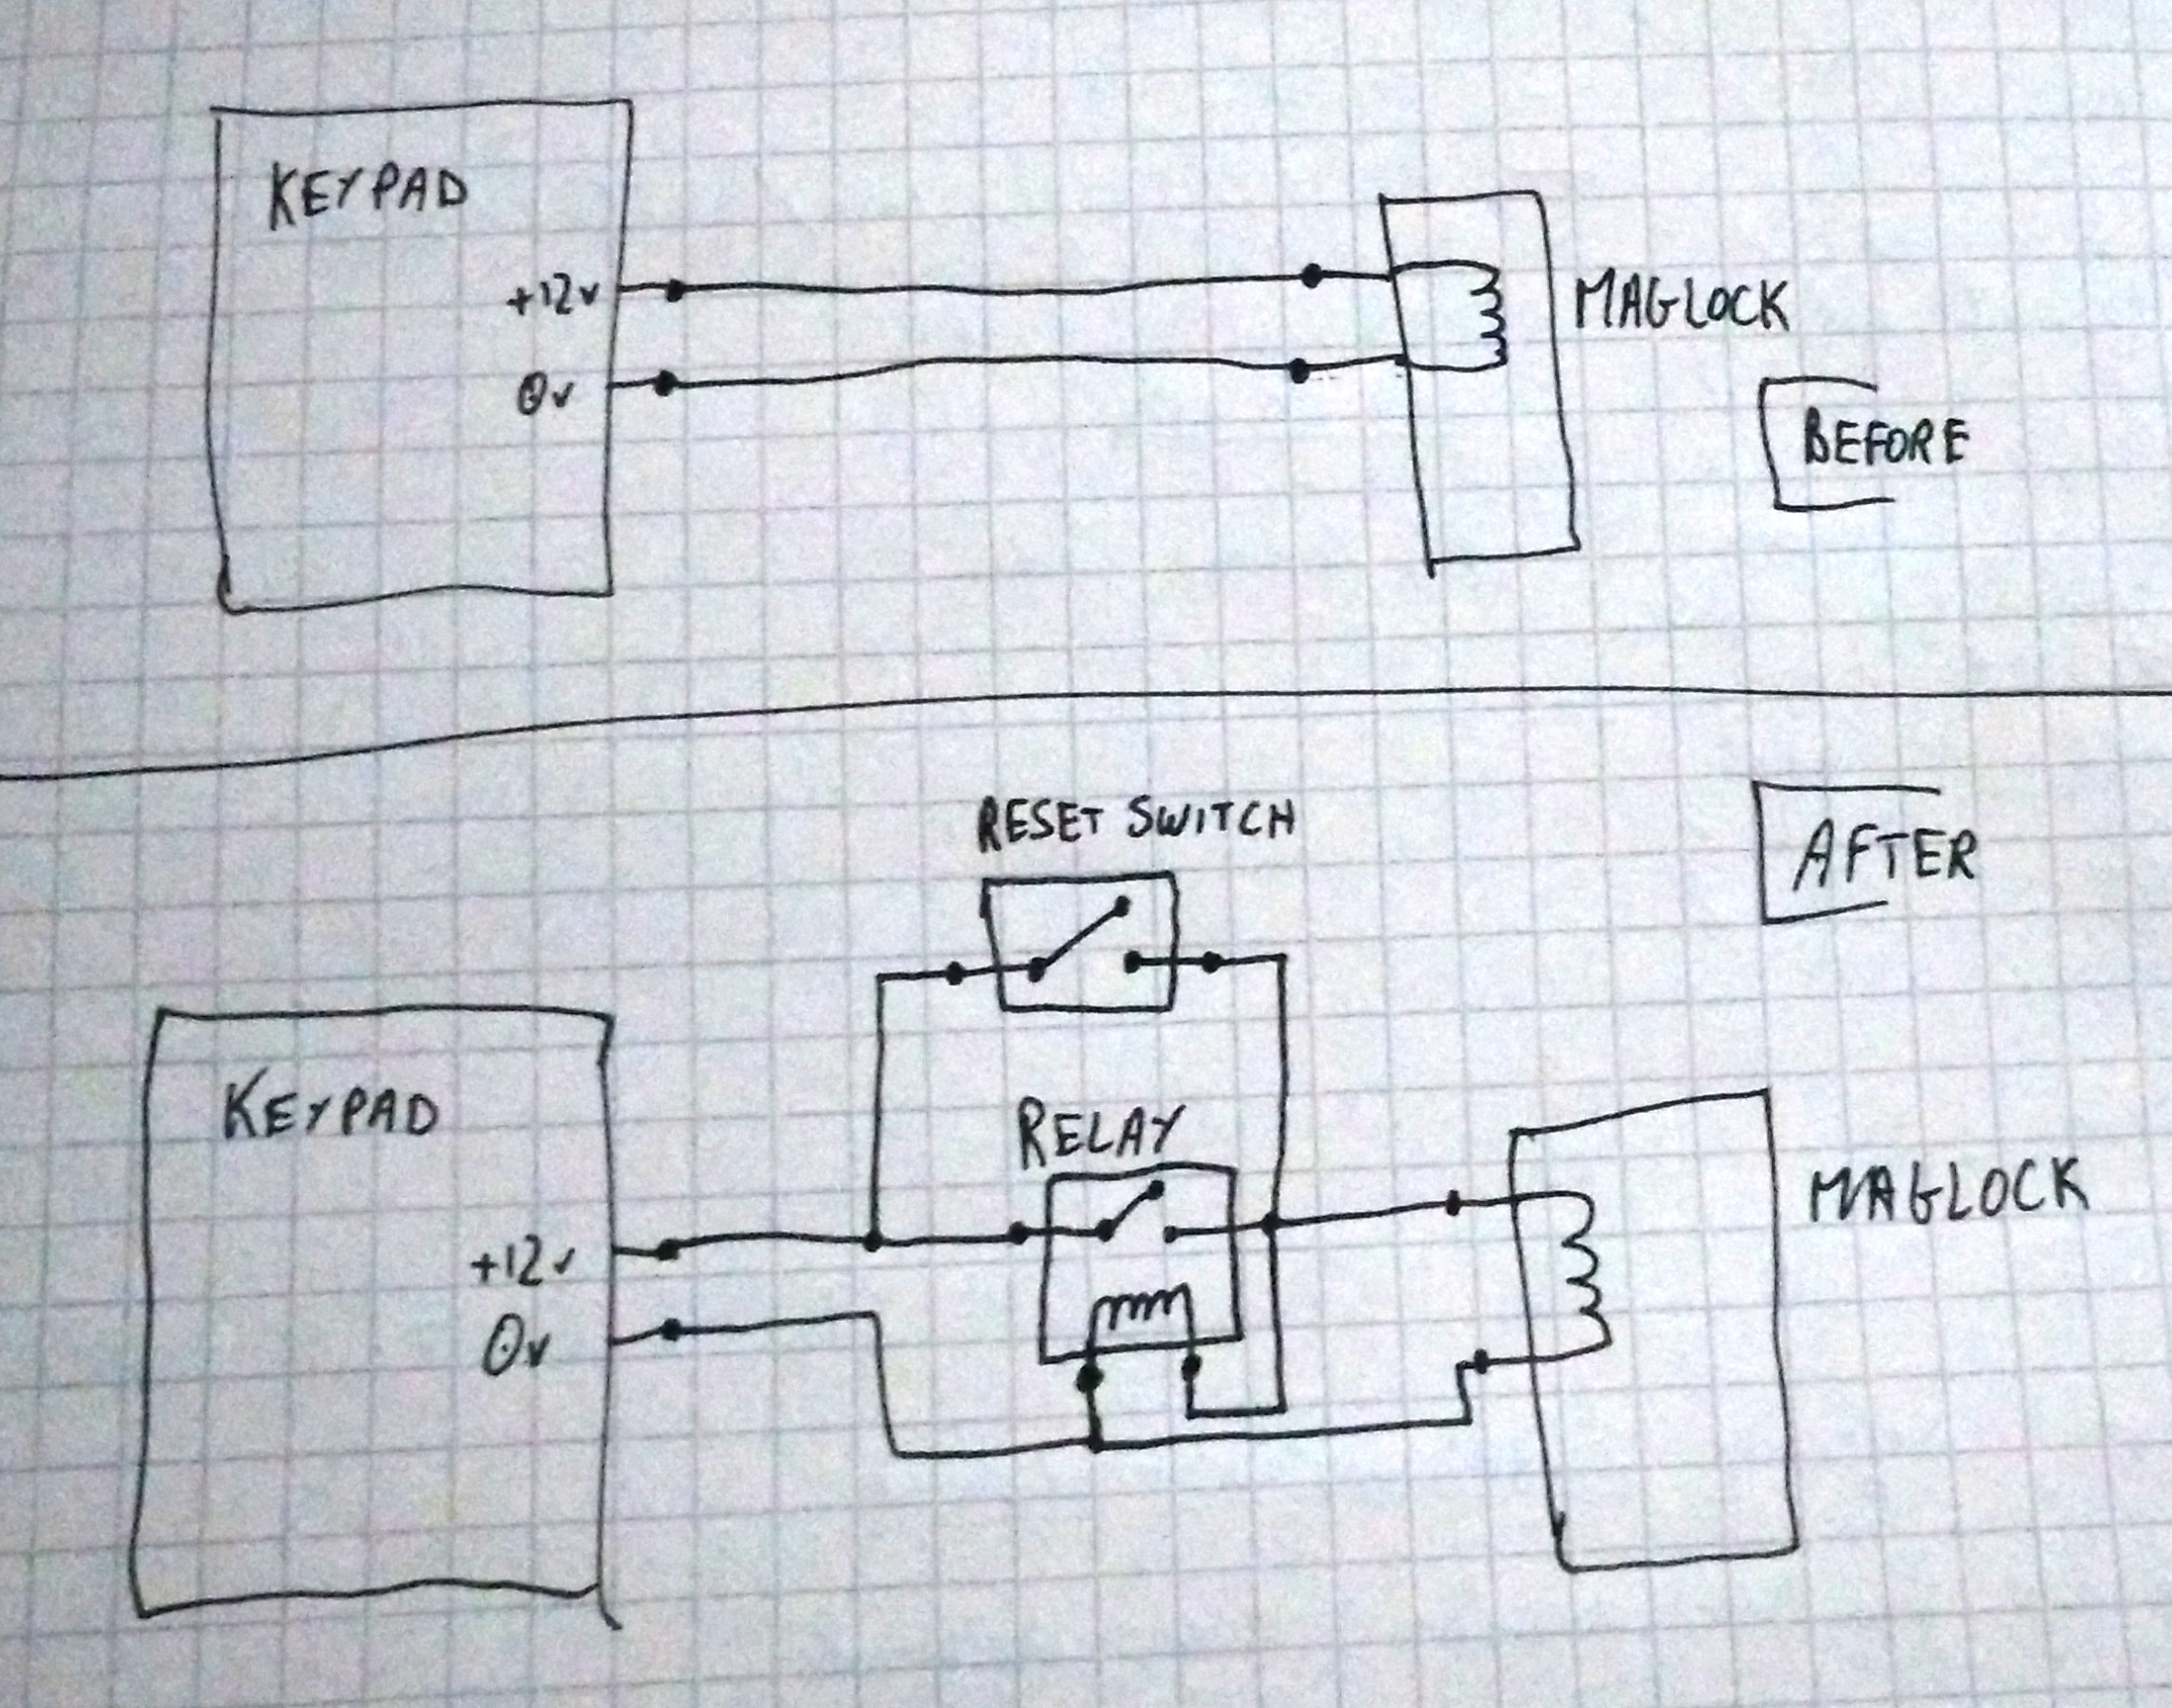 KEYPAD
+12v
0v
MAGLOCK
BEFORE
RESET SWITCH
AFTER
RELAY
KEYPAD
+12v
0v
MAGLOCK